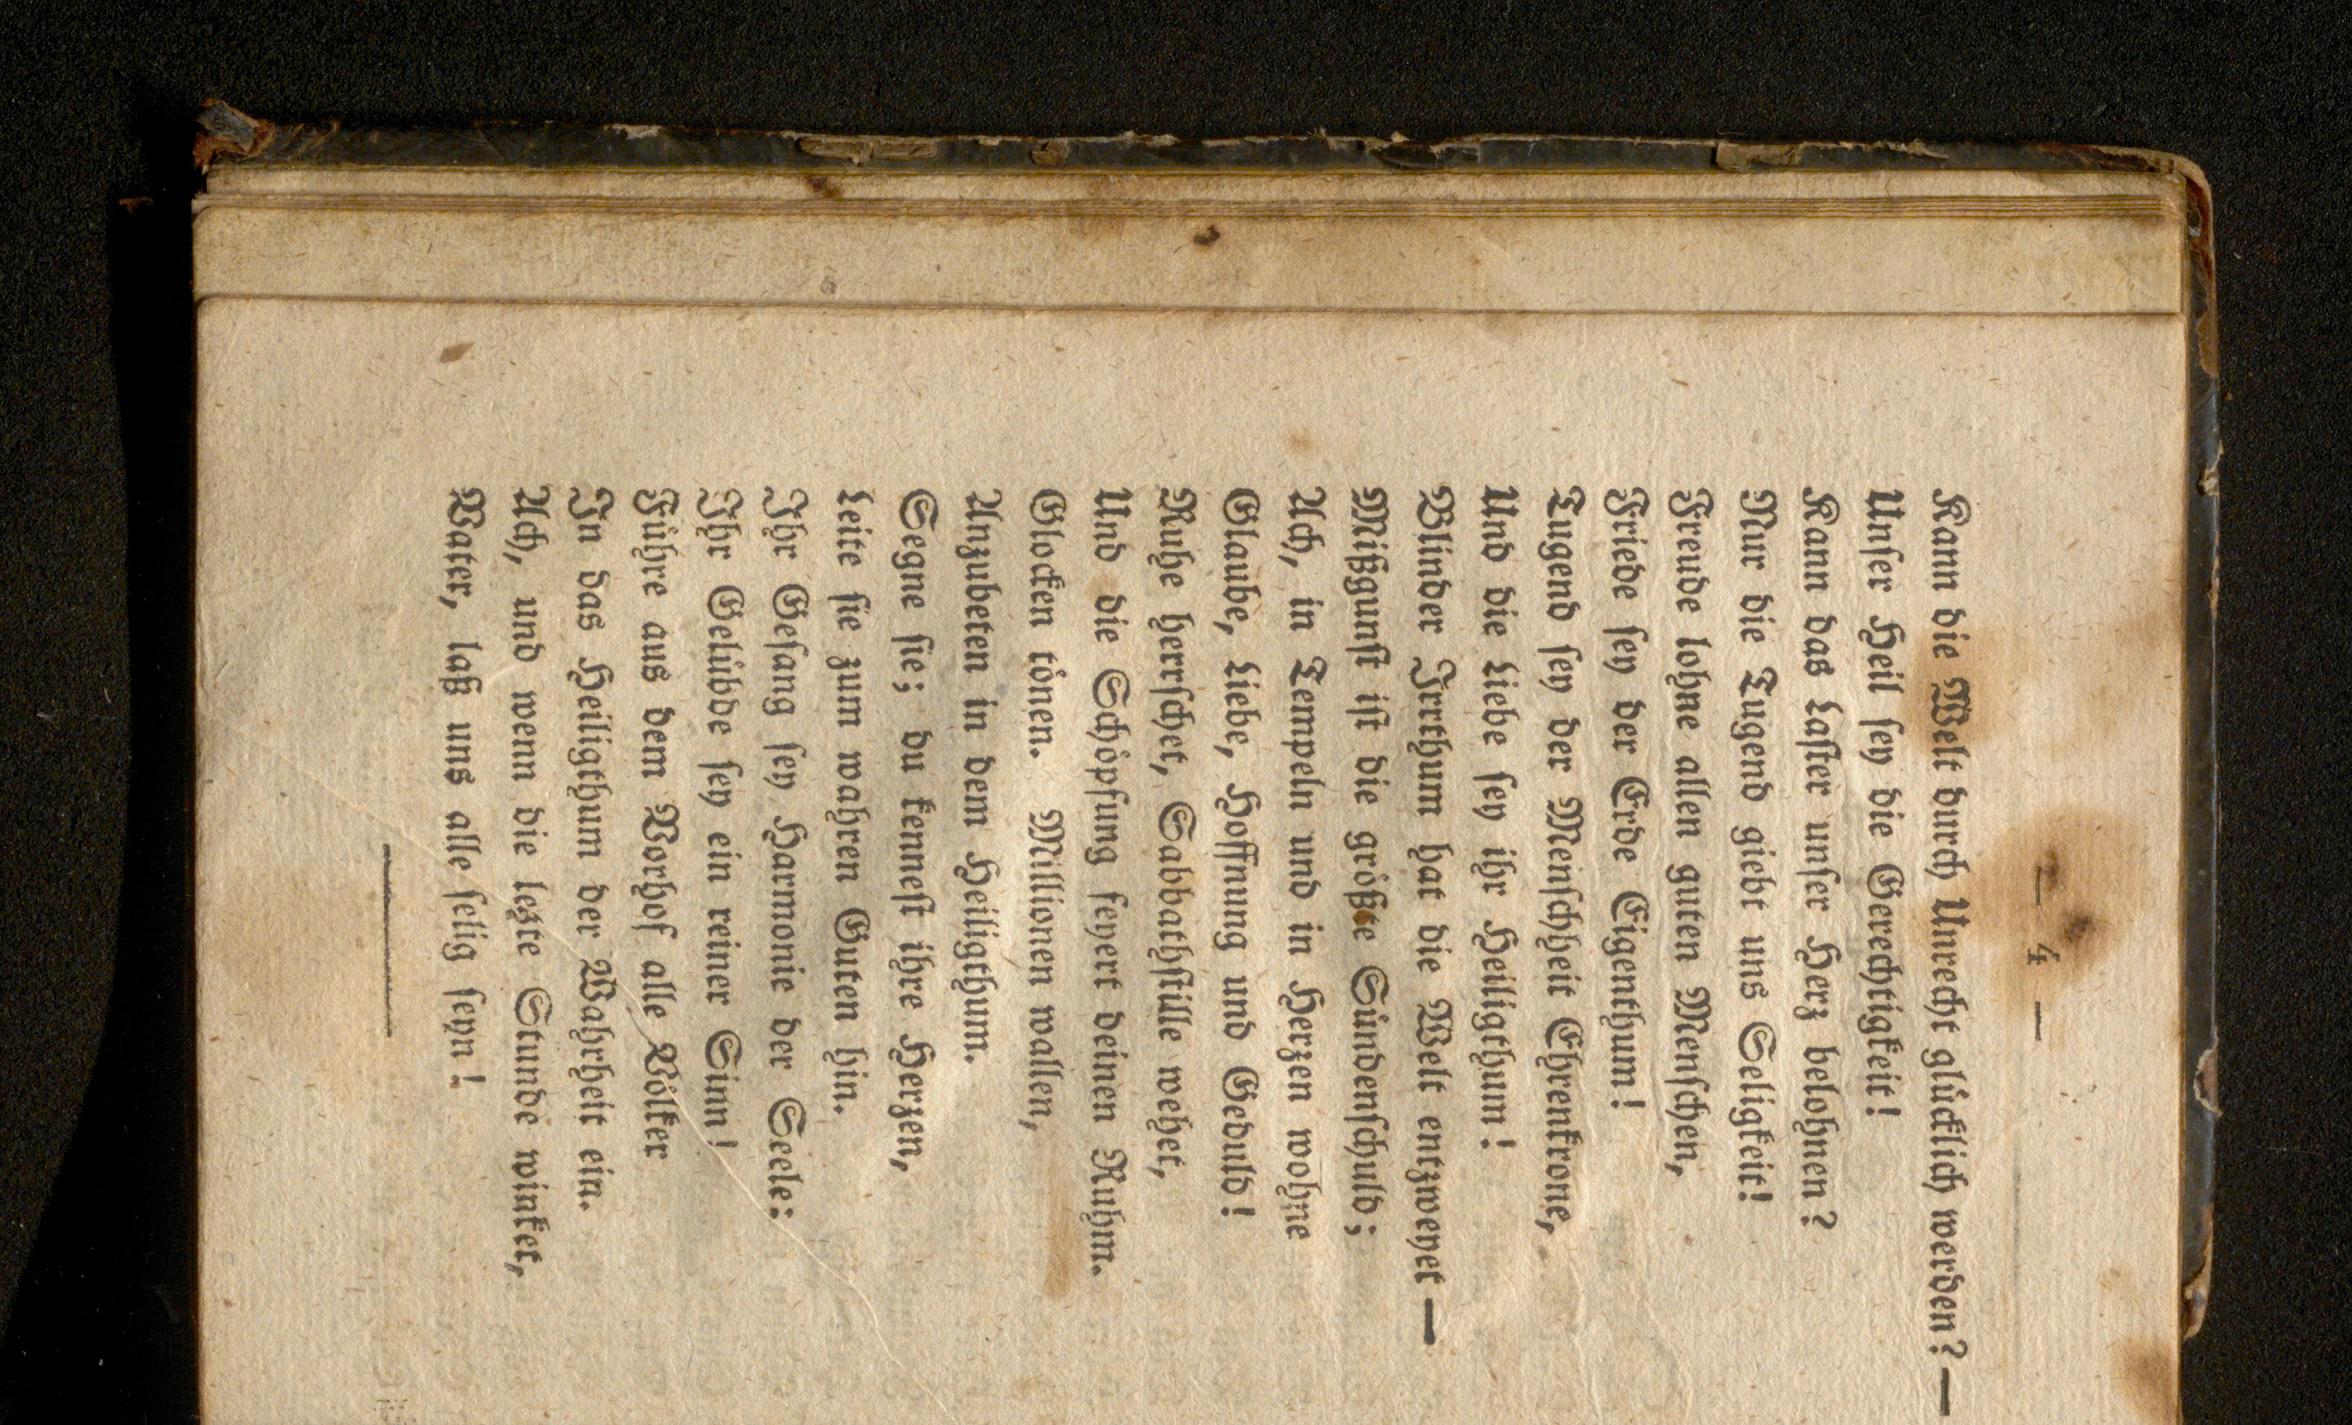 — 4 —
Kann die Welt durch Unrecht glücklich werden? —
Unser Heil sey die Gerechtigkeit!
Kann das Laster unser Herz belohnen?
Nur die Tugend giebt uns Seligkeit!
Freude lohne allen guten Menschen,
Friede sey der Erde Eigenthum!
Tugend sey der Menschheit Ehrenkrone,
Und die Liebe sey ihr Heiligthum!
Blinder Irrthum hat die Welt entzweyet —
Mißgunst ist die größte Sündenschuld;
Ach, in Tempeln und in Herzen wohne
Glaube, Liebe, Hoffnung und Geduld!
Ruhe herrschet, Sabbathstille wehet,
Und die Schöpfung feyert deinen Ruhm.
Glocken tönen. Millionen wallen,
Anzubeten in dem Heiligthum.
Segne sie; du kennest ihre Herzen,
Leite sie zum wahren Guten hin.
Ihr Gesang sey Harmonie der Seele:
Ihr Gelübde sey ein reiner Sinn!
Führe aus dem Vorhof alle Völker
In das Heiligthum der Wahrheit ein.
Ach, und wenn die lezte Stunde winket,
Vater, laß uns alle selig seyn!